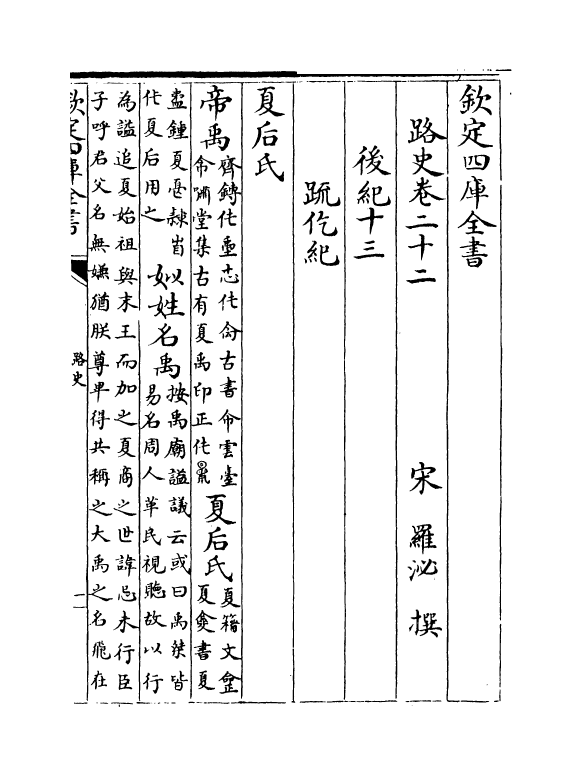 欽定四庫全書
路史卷二十二
宋 羅泌 撰
後紀十三
疏仡紀
夏后氏
帝禹齊鏄作𡍮志作命古書命雲臺
命嘯堂集古有夏禹印正作
夏后氏夏籀文
夏書夏
盉鍾夏隸省
作夏后用之
姒姓名禹按禹廟諡議云或曰禹桀皆
易名周人革民視聽故以行
為諡追夏始祖與末王而加之夏商之世諱忌未行臣
子呼君父名無嫌猶朕尊卑得共稱之大禹之名飛在
欽定四庫全書
路史
一